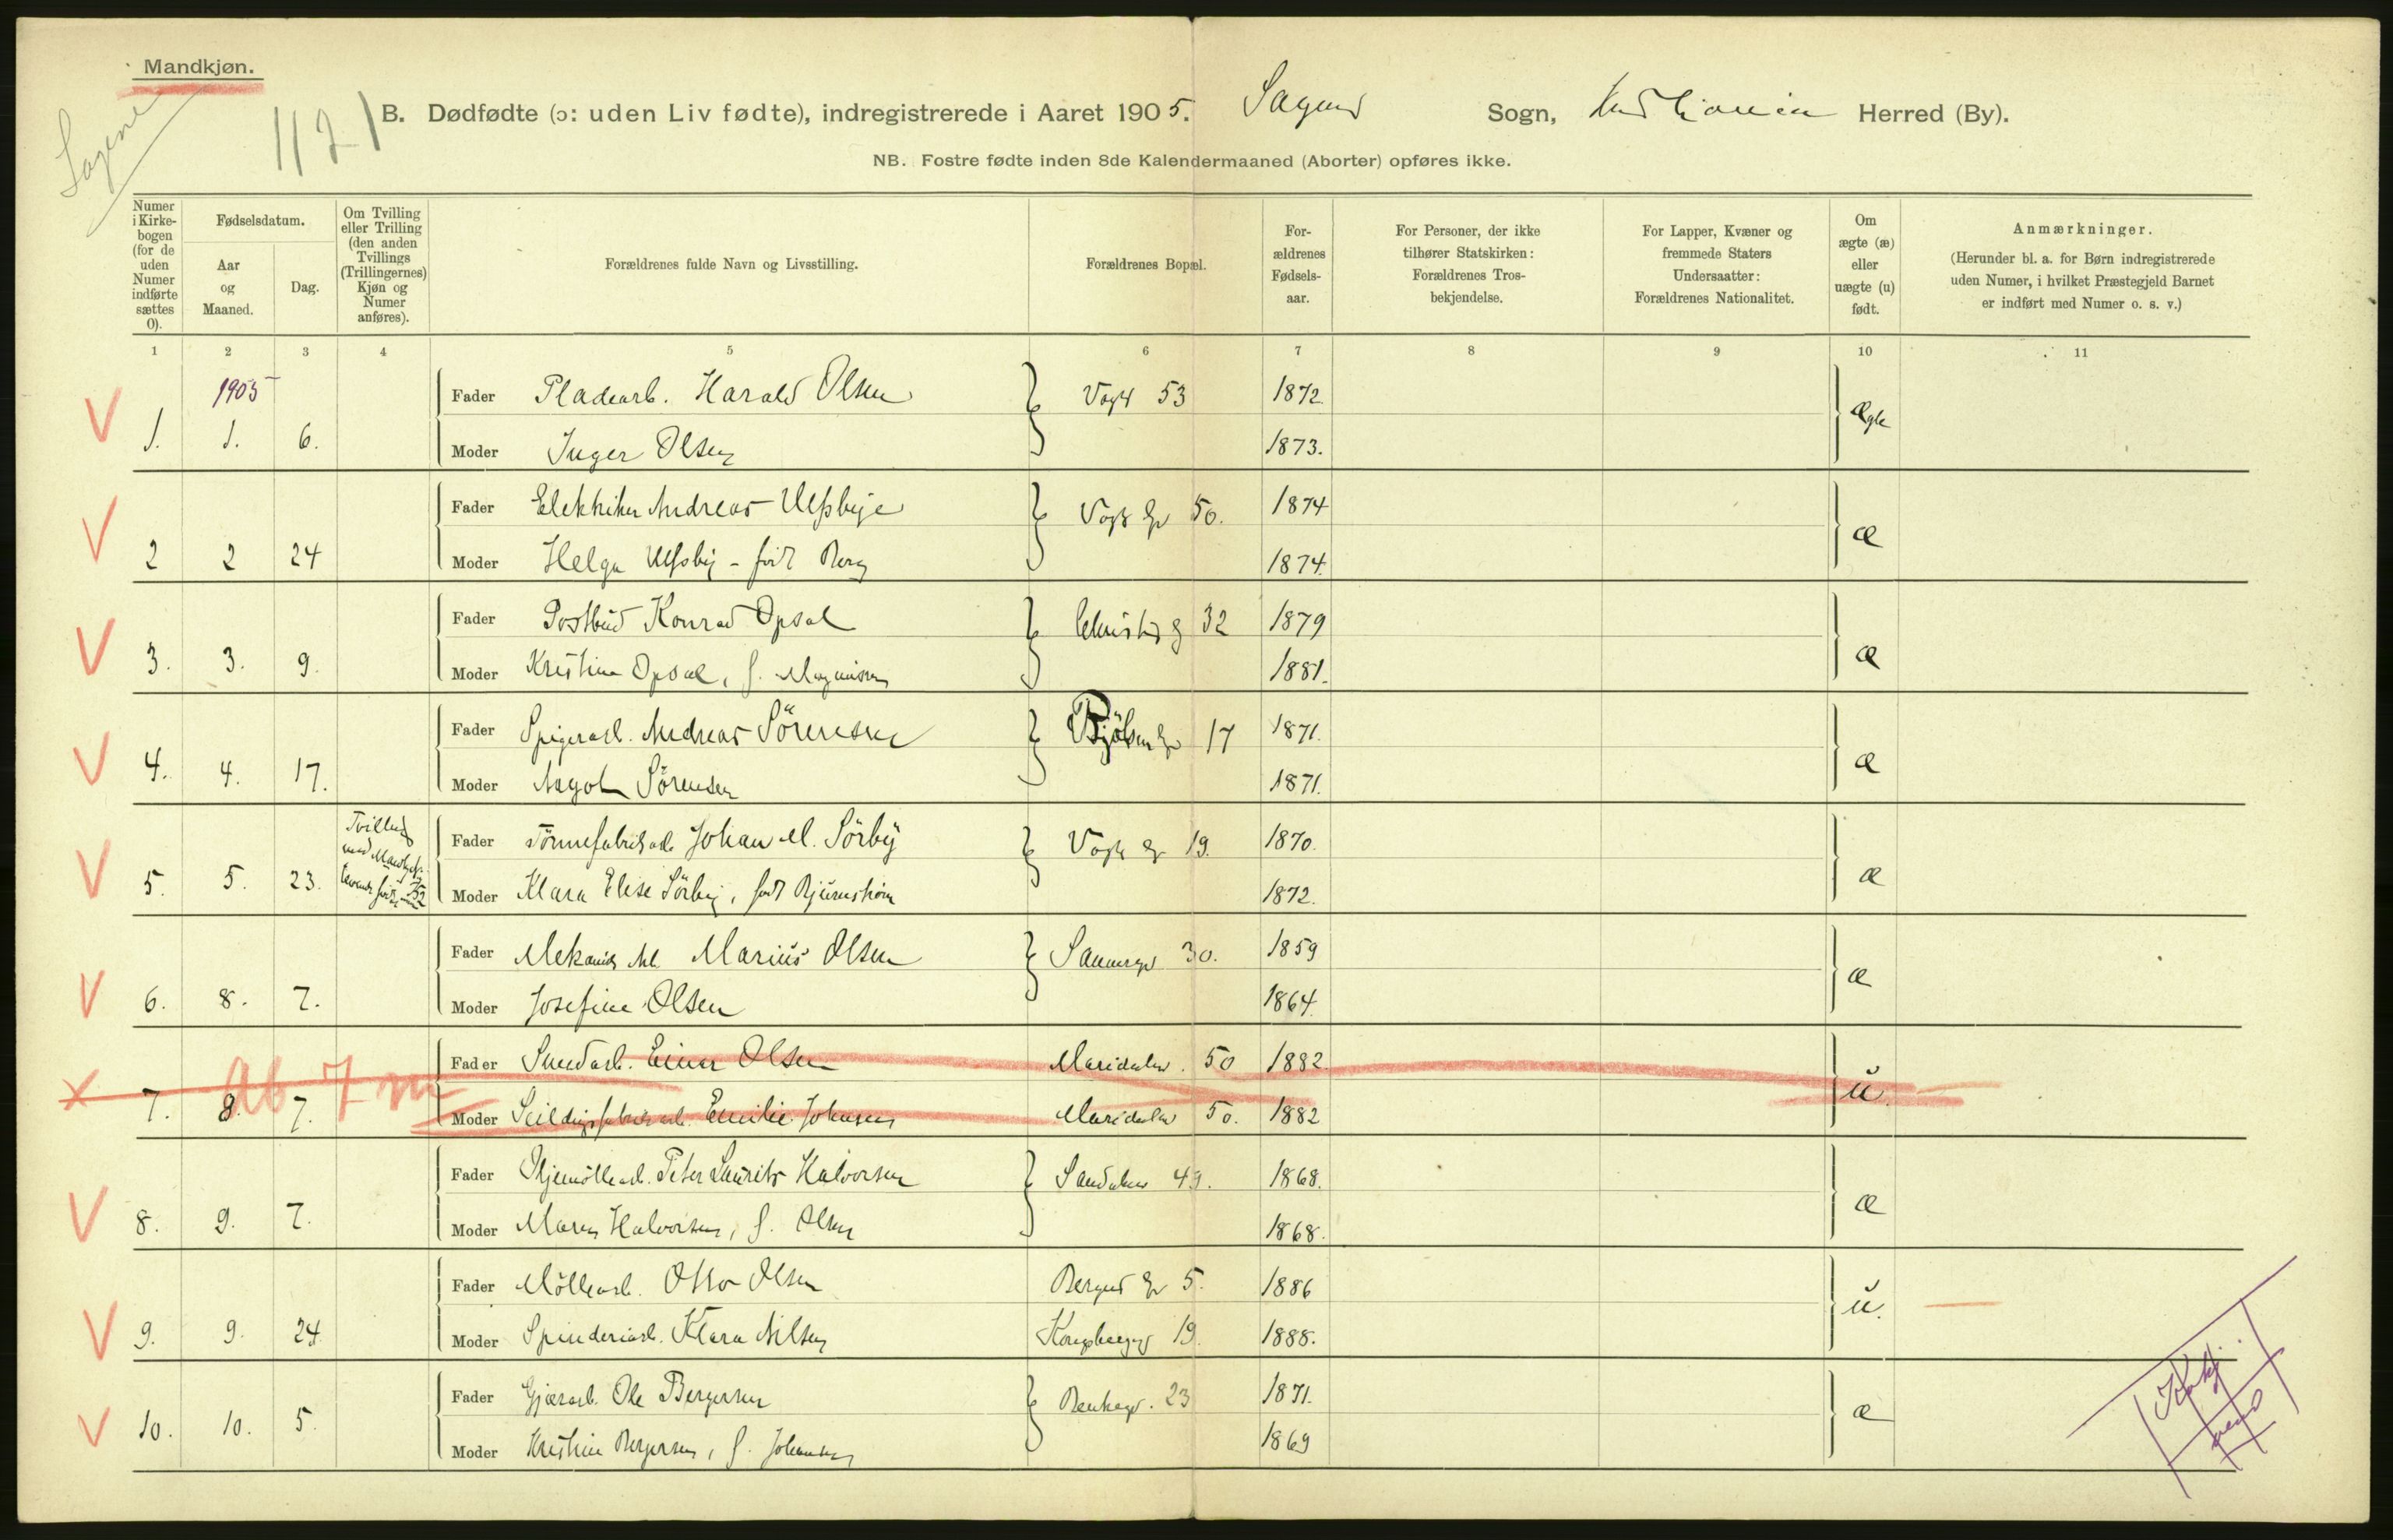 Mandkjøn.
Sagene
1121
B. Dødfødte (ɔ: uden Liv fødte), indregistrerede i Aaret 1905. Sagenes Sogn, Kristiania Herred (By).
NB. Fostre fødte inden 8de Kalendermaaned (Aborter) opføres ikke.
Numer i Kirke-bogen (for de uden Numer indførte sættes 0).
Fødselsdatum.
Aar og Maaned.
Dag.
Om Tvilling eller Trilling (den anden Tvillings (Trillingernes) Kjøn og Numer anføres).
Forældrenes fulde Navn og Livsstilling.
Forældrenes Bopæl.
For-ældrenes Fødsels-aar.
For Personer, der ikke tilhører Statskirken: Forældrenes Tros-bekjendelse.
For Lapper, Kvæner og fremmede Staters Undersaatter: Forældrenes Nationalitet.
Om ægte (æ) eller uægte (u) født.
Anmærkninger.
(Herunder bl. a. for Børn indregistrerede uden Numer, i hvilket Præstegjeld Barnet er indført med Numer o. s. v.)
1 2 3 4 5 6 7 8 9 10 11
1905
Fader Pladearb. Harald Olsen Vogts 53 1872. Ægte
V 1. 1. 6. Moder Inger Olsen 1873.
Fader Elektriker Andreas Ulfsbye Vogts gd 50. 1874 æ
V 2 2 24 Moder Helga Ulfsby - født Berg 1874.
Fader Postbud Konrad Opsal Christies g 32 1879 æ
V 3. 3. 9. Moder Kristine Opsal, f. Magnussen 1881.
Fader Spigerarb. Andreas Sörensen Bjölsen gd 17 1871. æ
V 4. 4. 17. Moder Sörensen 1871.
Fader Tönnefabrikarb. Johan M. Sörby Vogts g 19. 1870. æ
V 5. 5. 23. Tvilling med Mandkj. levende født 152 Moder Klara Elise Sörby, født Bjurnström 1872.
Fader Mekanisk Arb. Marius Olsen Sannergd 30. 1859 æ
V 6. 8. 7. Moder Josefine Olsen 1864.
Fader Smedarb. Einar Olsen Maridalsv. 50 1882 u.
x 7. 8. 7. Ab 7 m Moder Seildugsfabrikarb. Emilie Johnsen Maridalsv 50. 1882
Fader Oljemöllearb. Peter Laurits Halvorsen Sandakerv 49. 1868. æ
V 8. 9. 7. Moder Maren Halvorsen, f. Olsen 1868.
Fader Möllearb. Otto Olsen Bergens gd 5. 1886 u.
V 9. 9. 24 Moder Spinderiarb. Klara Nilsen Kongsberggd 19. 1888.
Fader Gjærarb. Ole Bergersen 23 1871. æ
V 10. 10. 5. Moder Kristine Bergersen, f. Johansen 1869